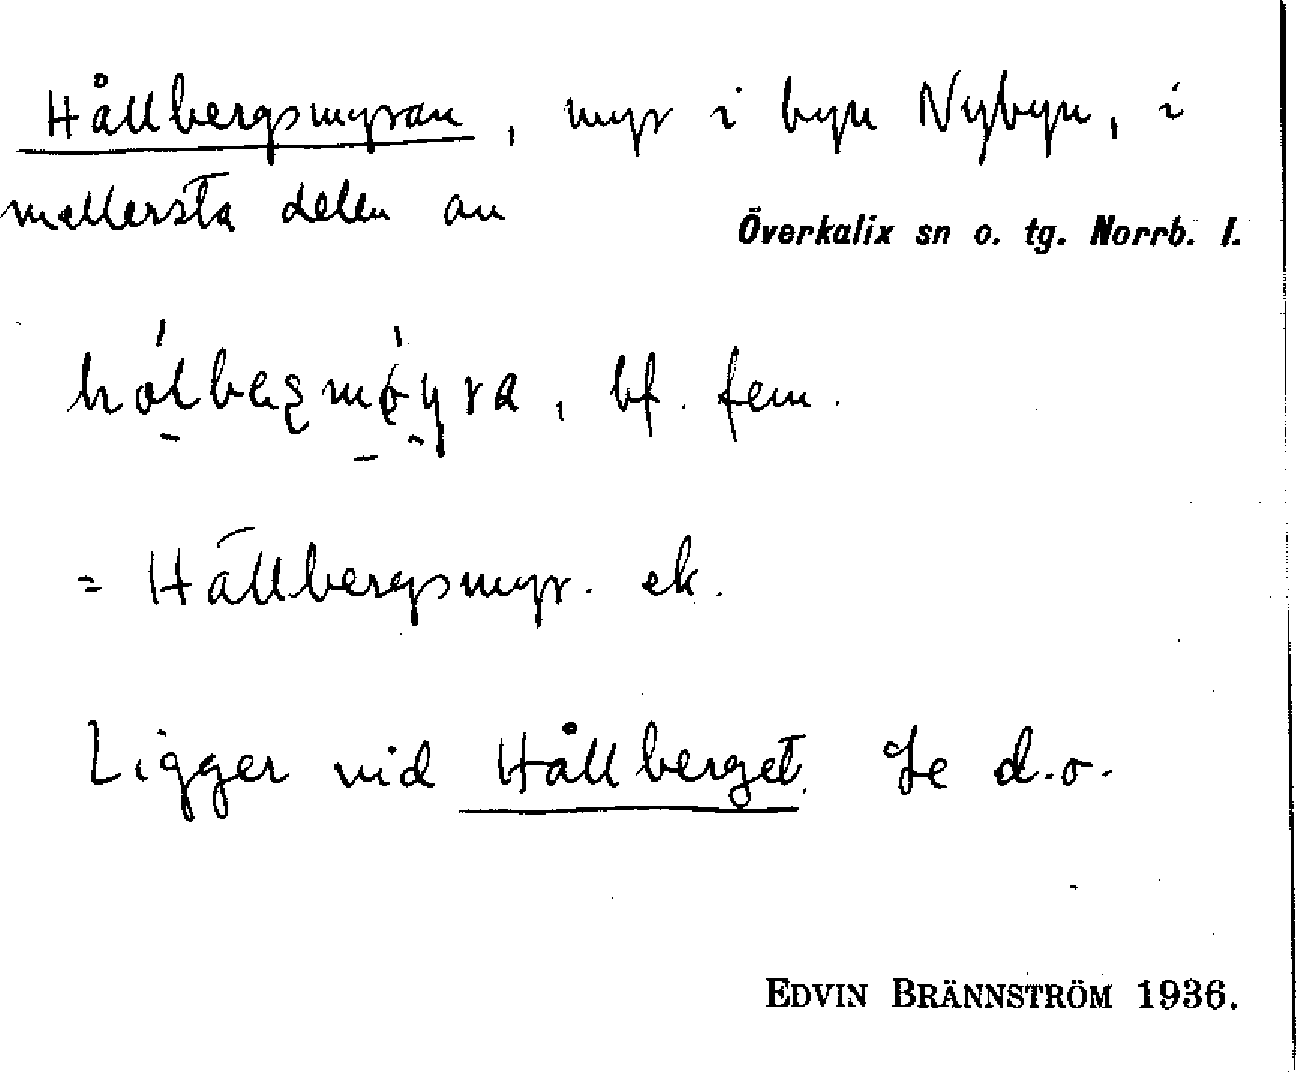 Hållbergsmyran, myr i byn Nybyn, i
mellersta delen av
Överkalix sn o. tg. Norrb. l.
bf. fem.
= Hällbergsmyr. ek.
Ligger vid Hållberget. Se d.o.
EDVIN BRÄNNSTRÖM 1936.